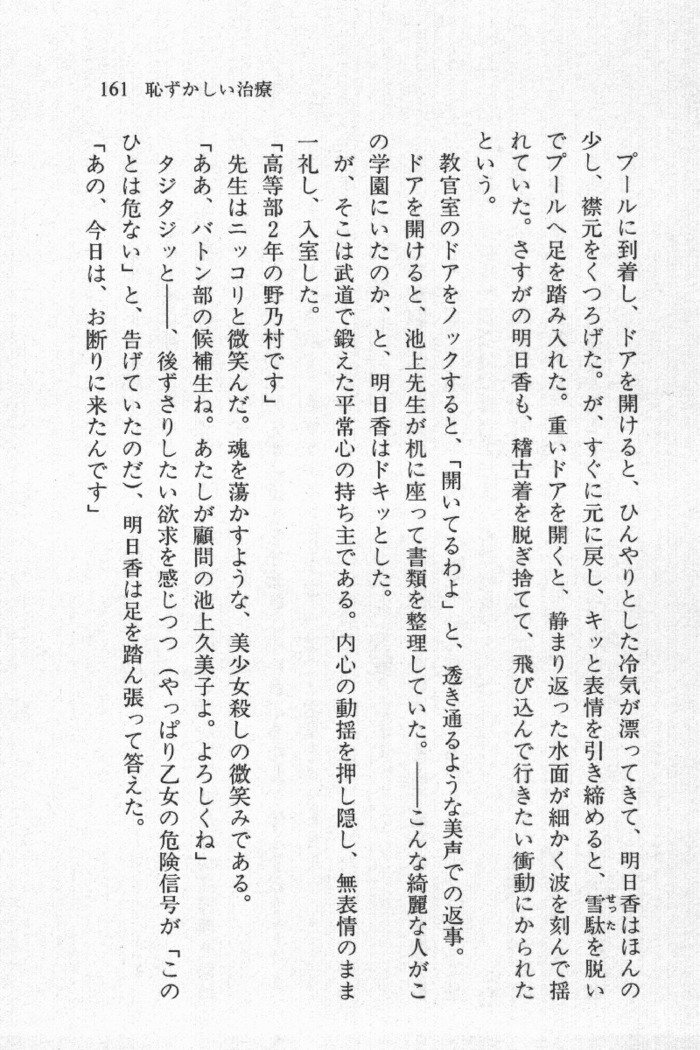 161 恥ずかしい治療
プールに到着し、ドアを開けると、ひんやりとした冷気が漂ってきて、明日香はほんの
少し、襟元をくつろげた。が、すぐに元に戻し、キッと表情を引き締めると、雪駄を脱い
でプールへ足を踏み入れた。重いドアを開くと、静まり返った水面が細かく波を刻んで揺
れていた。さすがの明日香も、稽古着を脱ぎ捨てて、飛び込んで行きたい衝動にかられた
という。
教官室のドアをノックすると、「開いてるわよ」と、透き通るような美声での返事。
ドアを開けると、池上先生が机に座って書類を整理していた。――こんな綺麗な人がこ
の学園にいたのか、と、明日香はドキッとした。
が、そこは武道で鍛えた平常心の持ち主である。内心の動揺を押し隠し、無表情のまま
一礼し、入室した。
「高等部2年の野乃村です」
先生はニッコリと微笑んだ。魂を蕩かすような、美少女殺しの微笑みである。
「ああ、バトン部の候補生ね。あたしが顧問の池上久美子よ。よろしくね」
タジタジッと――、後ずさりしたい欲求を感じつつ（やっぱり乙女の危険信号が「この
ひとは危ない」と、告げていたのだ）、明日香は足を踏ん張って答えた。
「あの、今日は、お断りに来たんです」
せった